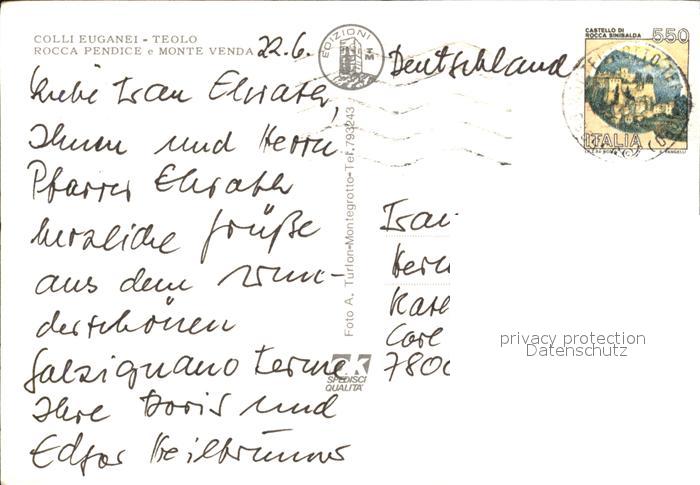 COLLI EUGANEI - TEOLO
ROCCA PENDICE e MONTE VENDA
22.6.
Liebe Frau Elsrath,
Ihnen und Herrn
Pfarrer Elsrath
herzliche Grüße
aus dem wun-
derschönen
Galzignano Terme
Ihre Doris und
Edgar Heilbrunner
EDIZIONI
Foto A. Turlon-Montegrotto-Tel. 793243
SPEDISCI
QUALITÀ
Deutschland
CASTELLO DI
ROCCA SINIBALDA
550
ITALIA
Frau
privacy protection
Datenschutz